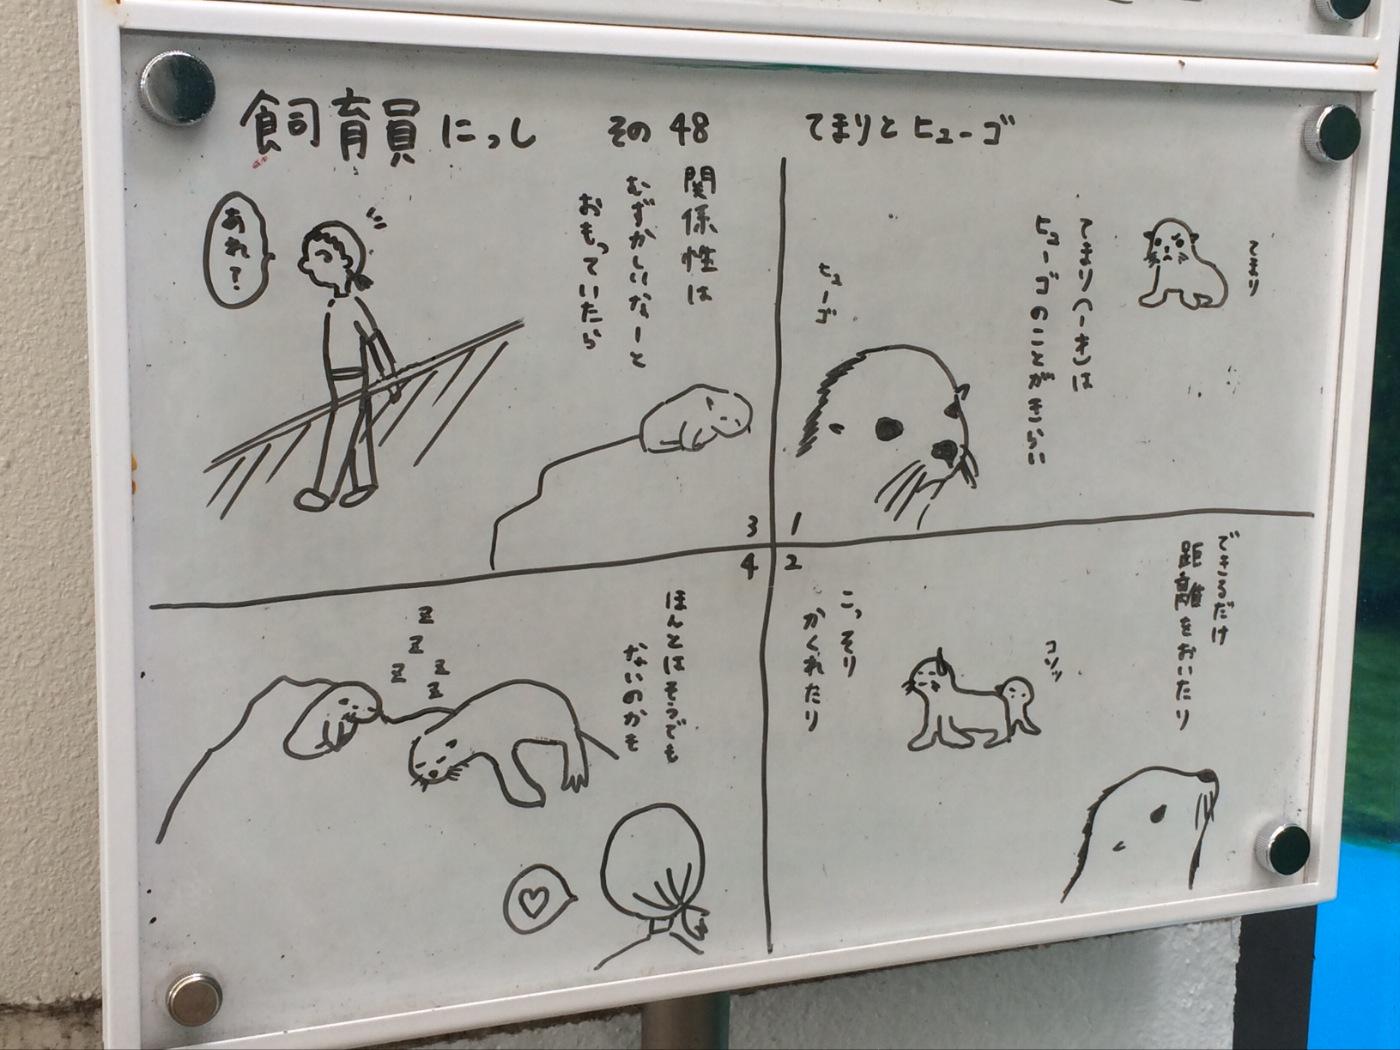 飼育員にっし その48 てまりとヒューゴ
てまり
てまり(1才)は
ヒューゴのことがきらい
ヒューゴ
1
できるだけ
距離をおいたり
コソッ
こっそり
かくれたり
2
関係性は
むずかしいなーと
おもっていたら
あれ?
3
ほんとはそうでも
ないのかも
z
z
z z
z
4